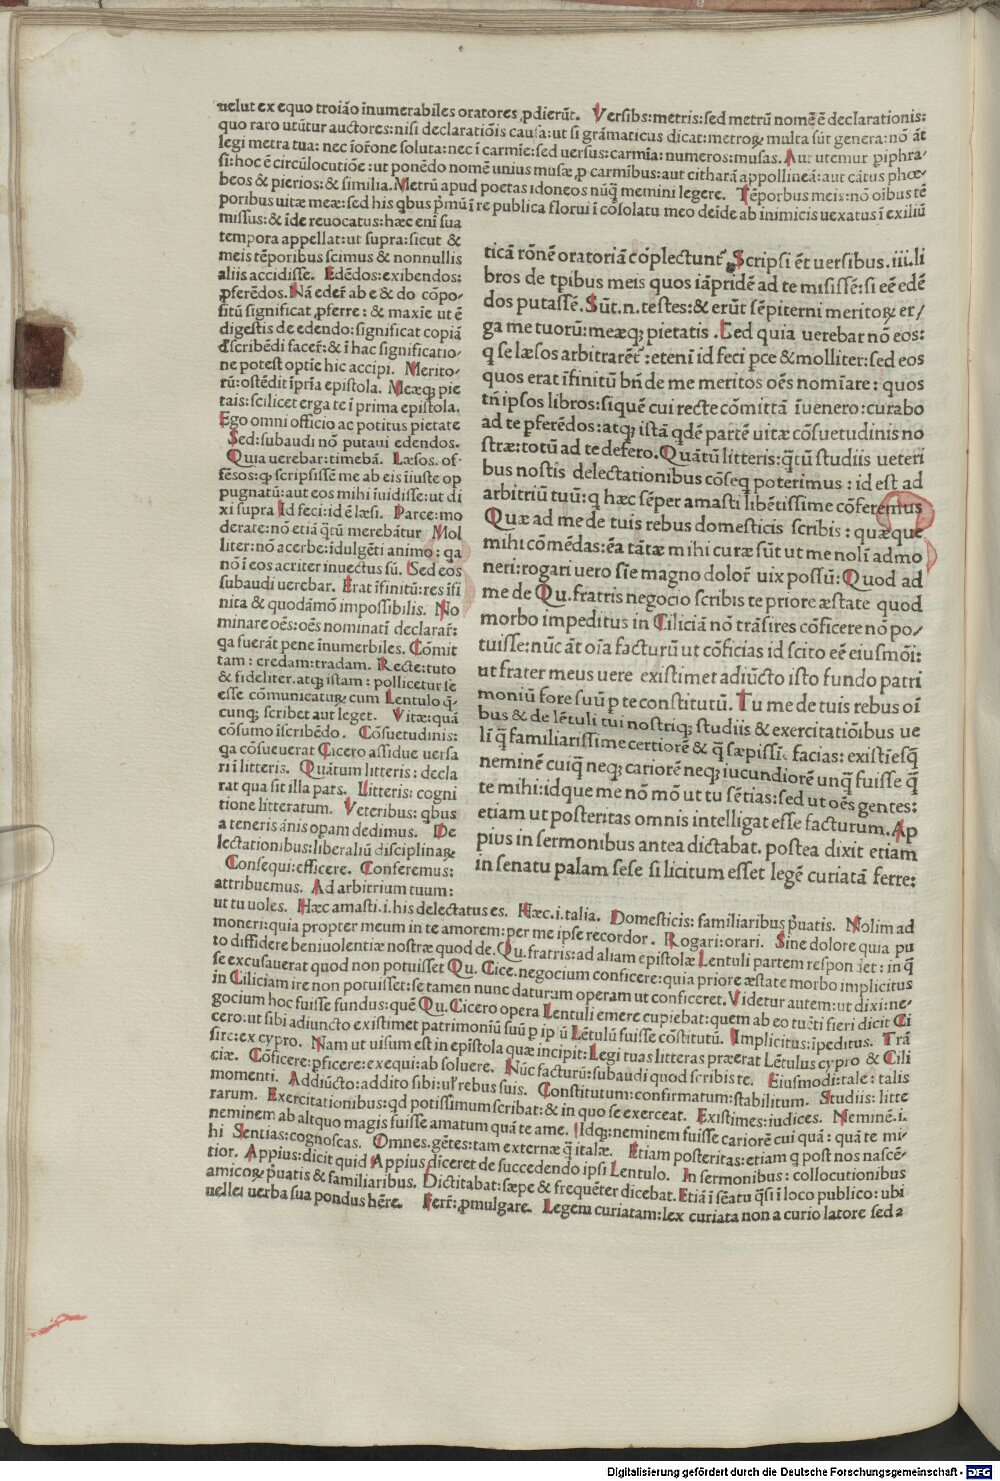 uelut ex equo troiāo īnumerabiles oratores ꝓdierūt. Versibs: metris: sed metrū nomē ē declarationis:
quo raro utūtur auctores: nisi declaratiōis causa: ut si grāmaticus dicat: metroꝝ multa sūt genera: nō āt
legi metra tua: nec īorōne soluta: nec ī carmīe: sed uersus: carmīa: numeros: musas. Aut utemur ꝑiphra-
si: hoc ē circūlocutiōe: ut ponēdo nomē unius musæ ꝓ carmībus: aut citharā appollineā: aut cātus phœ-
beos & pierios: & similia. Metrū apud poetas idoneos nūq̄ memini legere. Tēporbus meis: nō oībus tē
poribus uitæ meæ: sed his qbus pͥmū ī re publica florui ī cōsolatu meo deīde ab inimicis uexatus ī exiliū
missus: & īde reuocatus: hæc enī sua
tempora appellat: ut supra: sicut &
meis tēporibus scimus & nonnullis
aliis accidisse. Edēdos: exibendos:
ꝓferēdos. Nā eder̄ ab e & do cōpo-
sitū significat ꝓferre: & maxie ut ē
digestis de edendo: significat copiā
dscribēdi facer̄: & ī hac significatio-
ne potest optīe hic accipi. Merito-
rū: ostēdit īpria epistola. Meæqꝫ pie
tais: scilicet erga te ī prima epistola.
Ego omni officio ac potitus pietate
Sed: subaudi nō putaui edendos.
Quia uerebar: timebā. Læsos. of-
fēsos: ꝙ scripsisse me ab eis īiuste op
pugnatū: aut eos mihi īuidisse: ut di
xi supra Id feci: id ē læsi. Parce: mo
derate: nō etiā q̄tū merebātur Mol
liter: nō acerbe: īdulgēti animo: qa
nō ī eos acriter inuectus sū. Sed eos
subaudi uerebar. Erat īfinitū: res īfi
nita & quodāmō impossibilis. No
minare oēs: oēs nominatī declarar̄:
qa fuerāt pene īnumerbiles. Cōmit
tam: credam: tradam. Recte: tuto
& fideliter. atqꝫ istam: pollicetur se
esse cōmunicatuꝝ cum Lentulo q̄-
cunqꝫ scribet aut leget. Vitæ: quā
cōsumo īscribēdo. Cōsuetudinis:
qa cōsueuerat Cicero assidue uersa
ri ī litteris. Quātum litteris: decla
rat qua sit illa pars. Litteris: cogni
tione litteratum. Veteribus: qbus
a teneris ānis opam dedimus. De
lectationibus: liberaliū disciplinaꝝ
Consequi: efficere. Conferemus:
attribuemus. Ad arbitrium tuum:
ticā rōnē oratoriā cōplectunt᷑. Scripsi ēt uersibus .iii. li
bros de tpibus meis quos iāpridē ad te misissē: si eē edē
dos putassē. Sūt .n. testes: & erūt sēpiterni meritoꝝ er/
ga me tuorū: meæqꝫ pietatis. Sed quia uerebar nō eos:
q̄ se læsos arbitrarēt᷑: etenī id feci ꝑce & molliter: sed eos
quos erat īfinitū bn̄ de me meritos oēs nomīare: quos
tn̄ ipsos libros: siquē cui recte cōmittā īuenero: curabo
ad te ꝑferēdos: atqꝫ istā qdē partē uitæ cōsuetudinis no
stræ: totū ad te defero. Quātū litteris: q̄tū studiis ueteri
bus nostis delectationibus cōseq poterimus: id est ad
arbitriū tuū: q hæc sēper amasti libētissime cōferemus
Quæ ad me de tuis rebus domesticis scribis: quæque
mihi cōmēdas: ēa tātæ mihi curæ sūt ut me nolī admo
neri: rogari uero sīe magno dolor̄ uix possū: Quod ad
me de Qu. fratris negocio scribis te priore æstate quod
morbo impeditus in Ciliciā nō trāsires cōficere nō po/
tuisse: nūc āt oīa facturū ut cōficias id scito eē eiusmōi:
ut frater meus uere existimet adiūcto isto fundo patri
moniū fore suū p te constitutū. Tu me de tuis rebus oī
bus & de lētuli tui nostriqꝫ studiis & exercitatiōibus ue
lī q̄ familiarissime certiorē & q̄ sæpissīe facias: existīesqꝫ
neminē cuiq̄ neqꝫ cariorē neqꝫ iucundiorē unq̄ fuisse q̄
te mihi: idque me nō mō ut tu sētias: sed ut oēs gentes:
etiam ut posteritas omnis intelligat esse facturum. Ap
pius in sermonibus antea dictabat. postea dixit etiam
in senatu palam sese si licitum esset legē curiatā ferre:
ut tu uoles. Hæc amasti .i. his delectatus es. Hæc .i. talia. Domesticis: familiaribus pͥuatis. Nolim ad
moneri: quia propter meum in te amorem: per me ipse recordor. Rogari: orari. Sine dolore quia pu
to diffidere beniuolentiæ nostræ quod de. Qu. fratris: ad aliam epistolæ Lentuli partem respondet: in q̄
se excusauerat quod non potuisset Qu. Cice. negocium conficere: quia priore æstate morbo implicitus
in Ciliciam ire non potuisset: se tamen nunc daturum operam ut conficeret. Videtur autem: ut dixi: ne-
gocium hoc fuisse fundus: quē Qu. Cicero opera Lentuli emere cupiebat: quem ab eo tuēti fieri dicit Ci
cero: ut sibi adiuncto existimet patrimoniū suū ꝑ ip̄ū Lētulū fuisse cōstitutū. Implicitus: īpeditus. Trā
sire: ex cypro. Nam ut uisum est in epistola quæ incipit: Legi tuas litteras præerat Lētulus cypro & Cili
ciæ. Cōficere: ꝑficere: exequi: ab soluere. Nūc facturū: subaudi quod scribis te. Eiusmodi: tale: talis
momenti. Addiūcto: addito sibi: ul̄ rebus suis. Constitutum: confirmatum: stabilitum. Studiis: litte
rarum. Exercitationibus: qd potissimum scribat: & in quo se exerceat. Existimes: iudices. Neminē .i.
neminem ab altquo magis fuisse amatum quā te ame. Idqꝫ: neminem fuisse cariorē cui quā: quā te mi-
hi Sentias: cognoscas. Omnes. gētes: tam externæ q̄ italæ. Etiam posteritas: etiam q post nos nascē-
tior. Appius: dicit quid Appius diceret de succedendo ipsi Lentulo. In sermonibus: collocutionibus
amicoꝝ pͥuatis & familiaribus. Dictitabat: sæpe & frequēter dicebat. Etiā ī sēatu q̄si ī loco publico: ubi
uellei uerba sua pondus hēre. Ferr̄: ꝓmulgare. Legem curiatam: lex curiata non a curio latore sed a
Digitalisierung gefördert durch die Deutsche Forschungsgemeinschaft - DFG